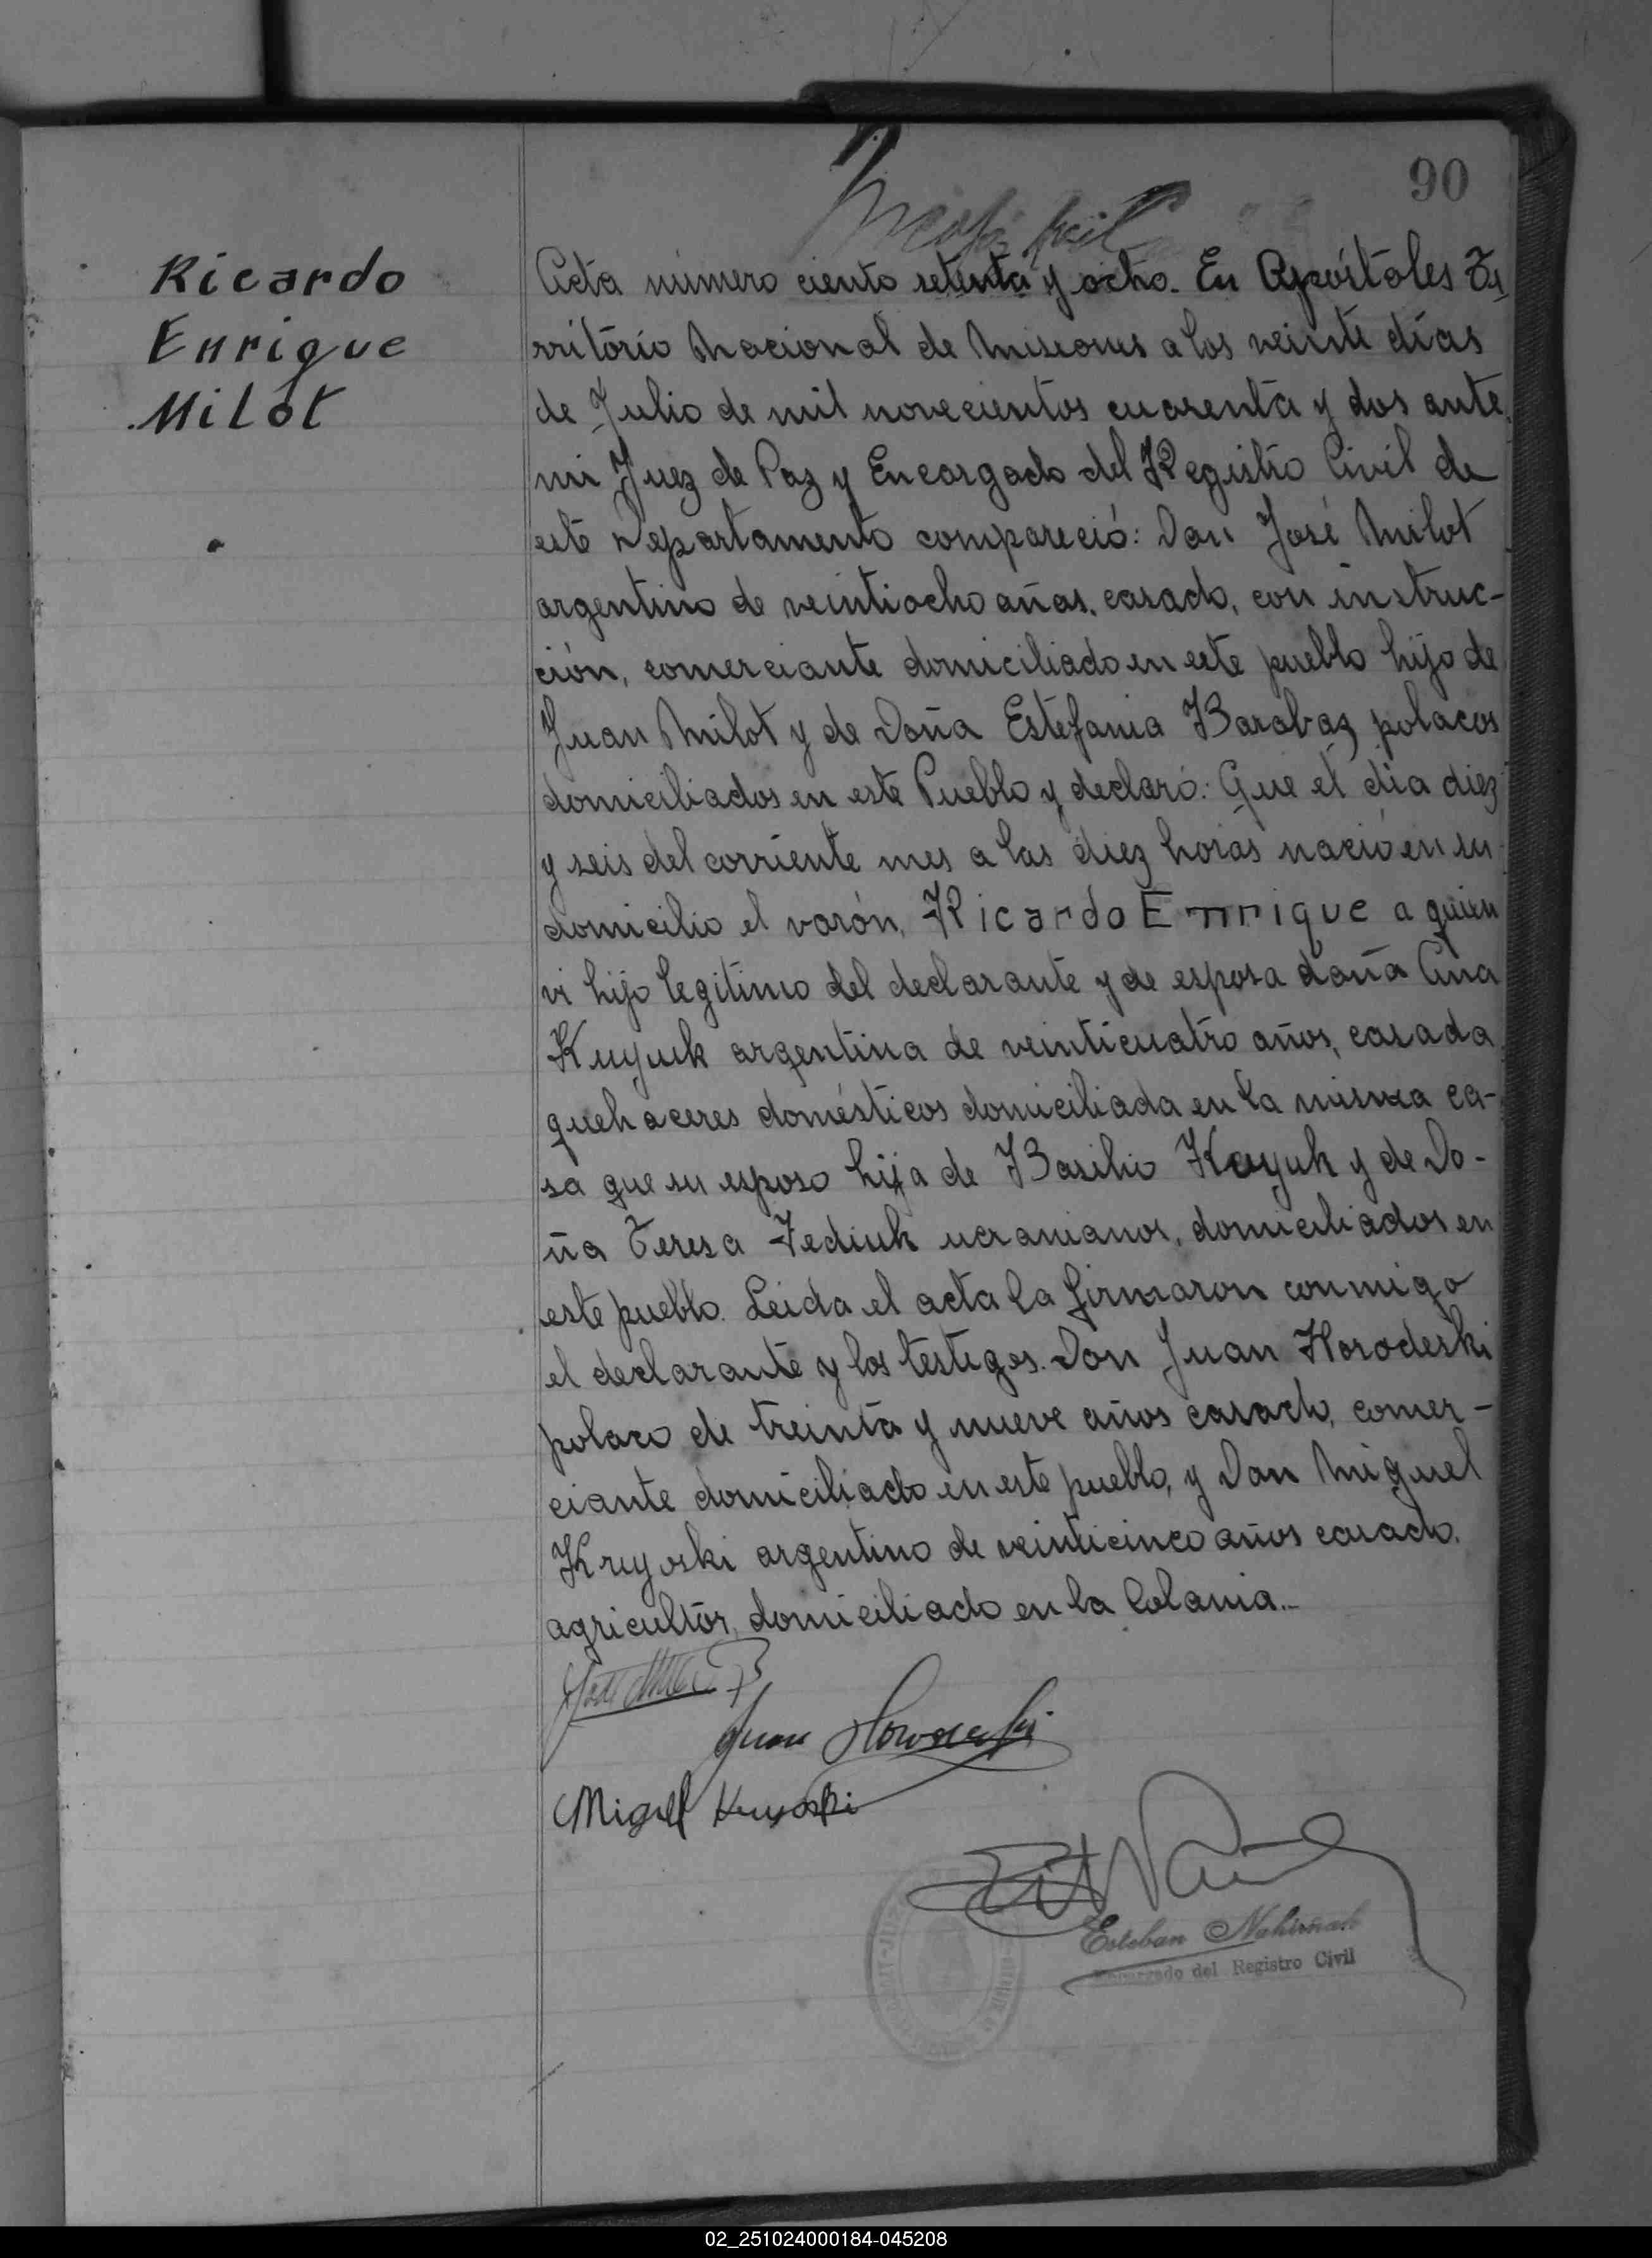 90
Ricardo
Enrique
Milot
Acta número ciento setenta y ocho. En Apóstoles Te
rritorio Nacional de Misiones a los veinte días
de Julio de mil novecientos cuarenta y dos ante
mi Juez de Paz y Encargado del Registro Civil de
este Departamento compareció: Don José Milot
argentino de veintiocho años, casado, con instruc-
ción, comerciante domiciliado en este pueblo hijo de
Juan Milot y de Doña Estefania Barabaz polacos
domiciliados en este Pueblo y declaró: Que el día diez
y seis del corriente mes a las diez horas nació en su
domicilio el varón, Ricardo Enrique a quien
vi hijo legitimo del declarante y de esposa doña Ana
Kuyuk argentina de veinticuatro años, casada
quehaceres domésticos domiciliada en la misma ca-
sa que su esposo hija de Basilio Kuyuk y de Do-
ña Teresa Fediuk ucranianos, domiciliados en
este pueblo. Leida el acta la firmaron conmigo
el declarante y los testigos. Don Juan Horodeski
polaco de treinta y nueve años casado, comer-
ciante domiciliado en este pueblo, y Don Miguel
Kruyoski argentino de veinticinco años casado.
agricultor, domiciliado en la Colonia.-
Juan
Miguel
Esteban Nahirñak
Encargado del Registro Civil
02_251024000184-045208